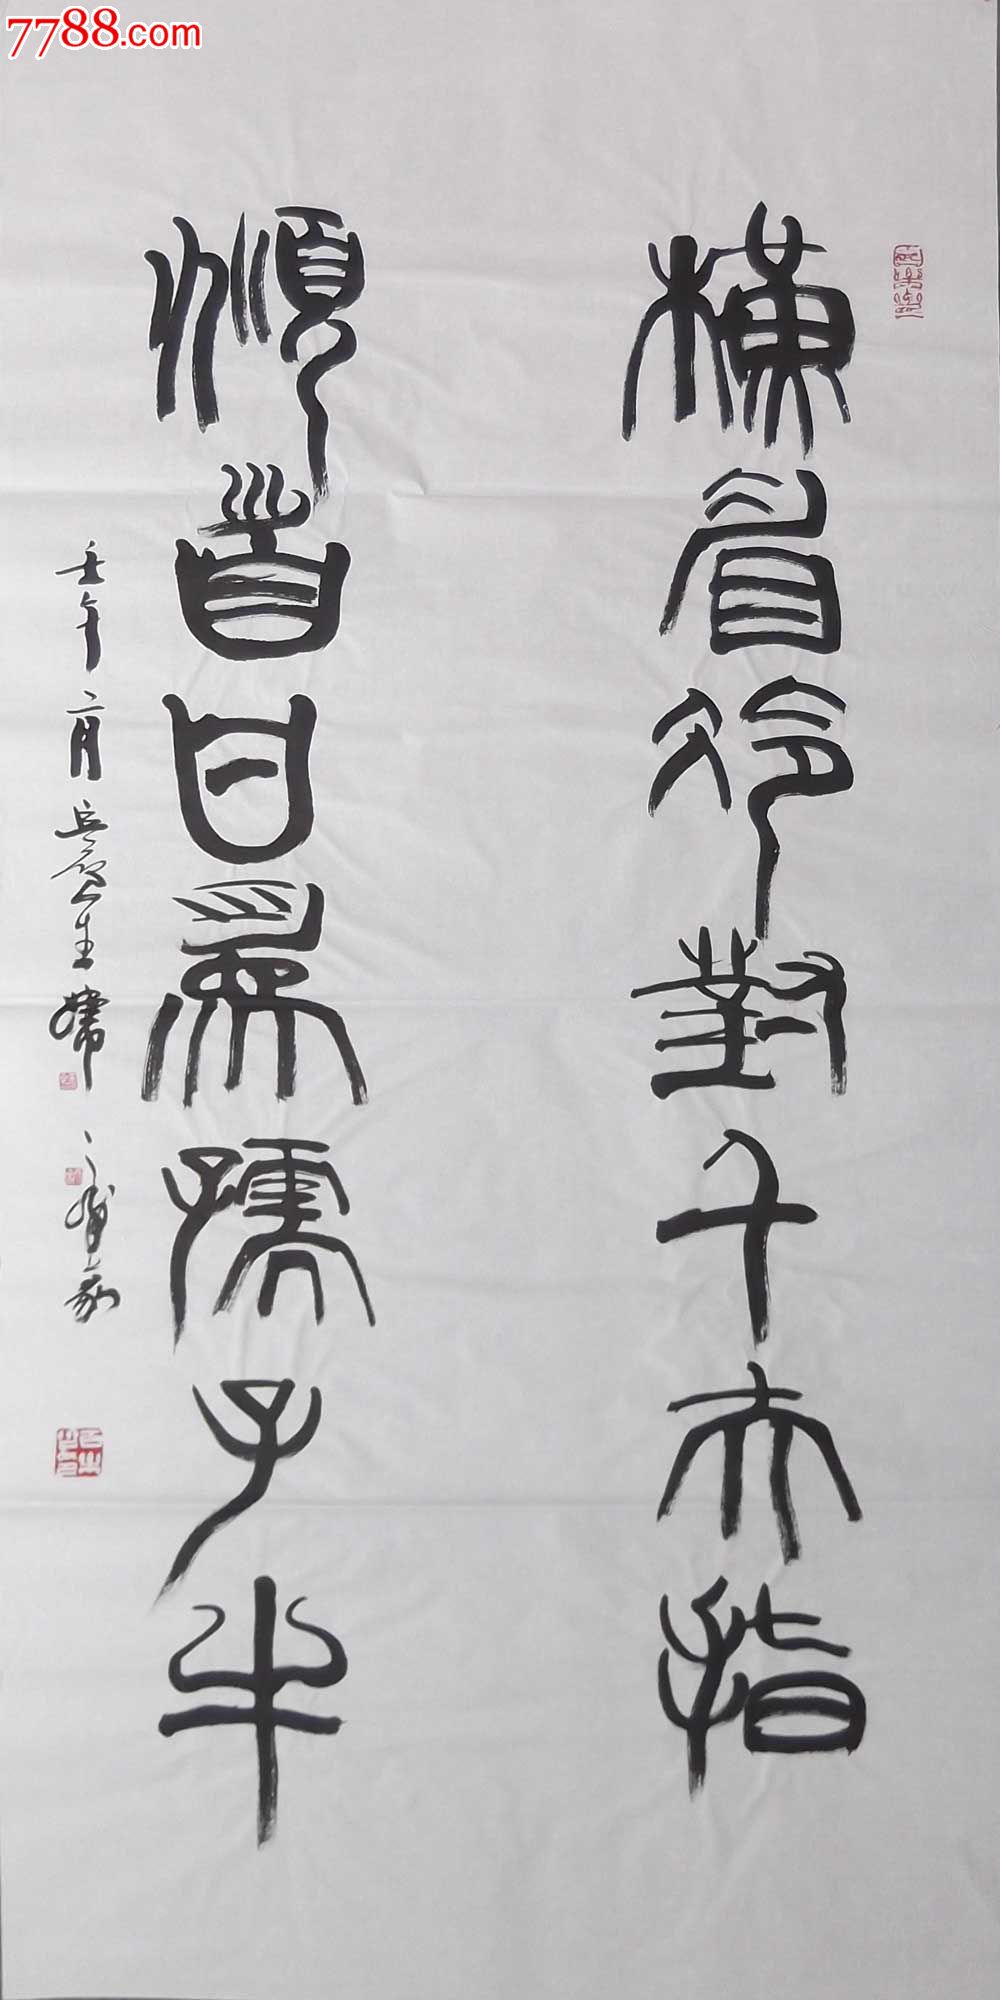 7788.com
橫眉冷對千夫指
頫首甘為孺子牛
壬午二月